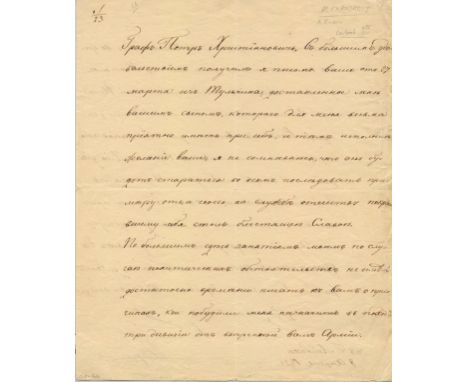 Графъ Петръ Христіановичъ, Съ большимъ удо
вольствіемъ получилъ я письмо ваше отъ 27
марта изъ Тульчина, доставленное мнѣ
вашимъ сыномъ, котораго для меня весьма
пріятно имѣть при себѣ, и тѣмъ исполнить
желаніе ваше, я не сомнѣваюсь, что онъ бу
детъ стараться во всемъ послѣдовать при
мѣру отца своего въ службѣ отечеству
столь блестящею Славою.
По большимъ занятіямъ моимъ по слу
чаю политическихъ обстоятельствъ не имѣлъ
достаточно времени писать къ вамъ о при
чинахъ, кои побудили меня
три дивизіи ввѣренной вамъ Арміи.